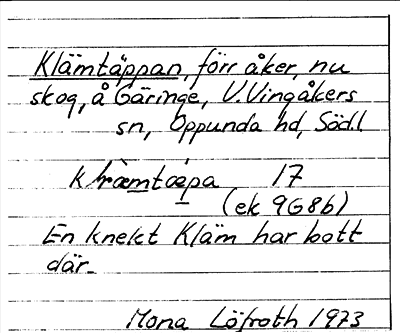 Klämtäppan, förr åker, nu
skog, å Gäringe, V.Vingåkers
sn, Oppunda hd, Södl.
17
(ek 9G8b)
En knekt Kläm har bott
där.
Mona Löfroth 1973